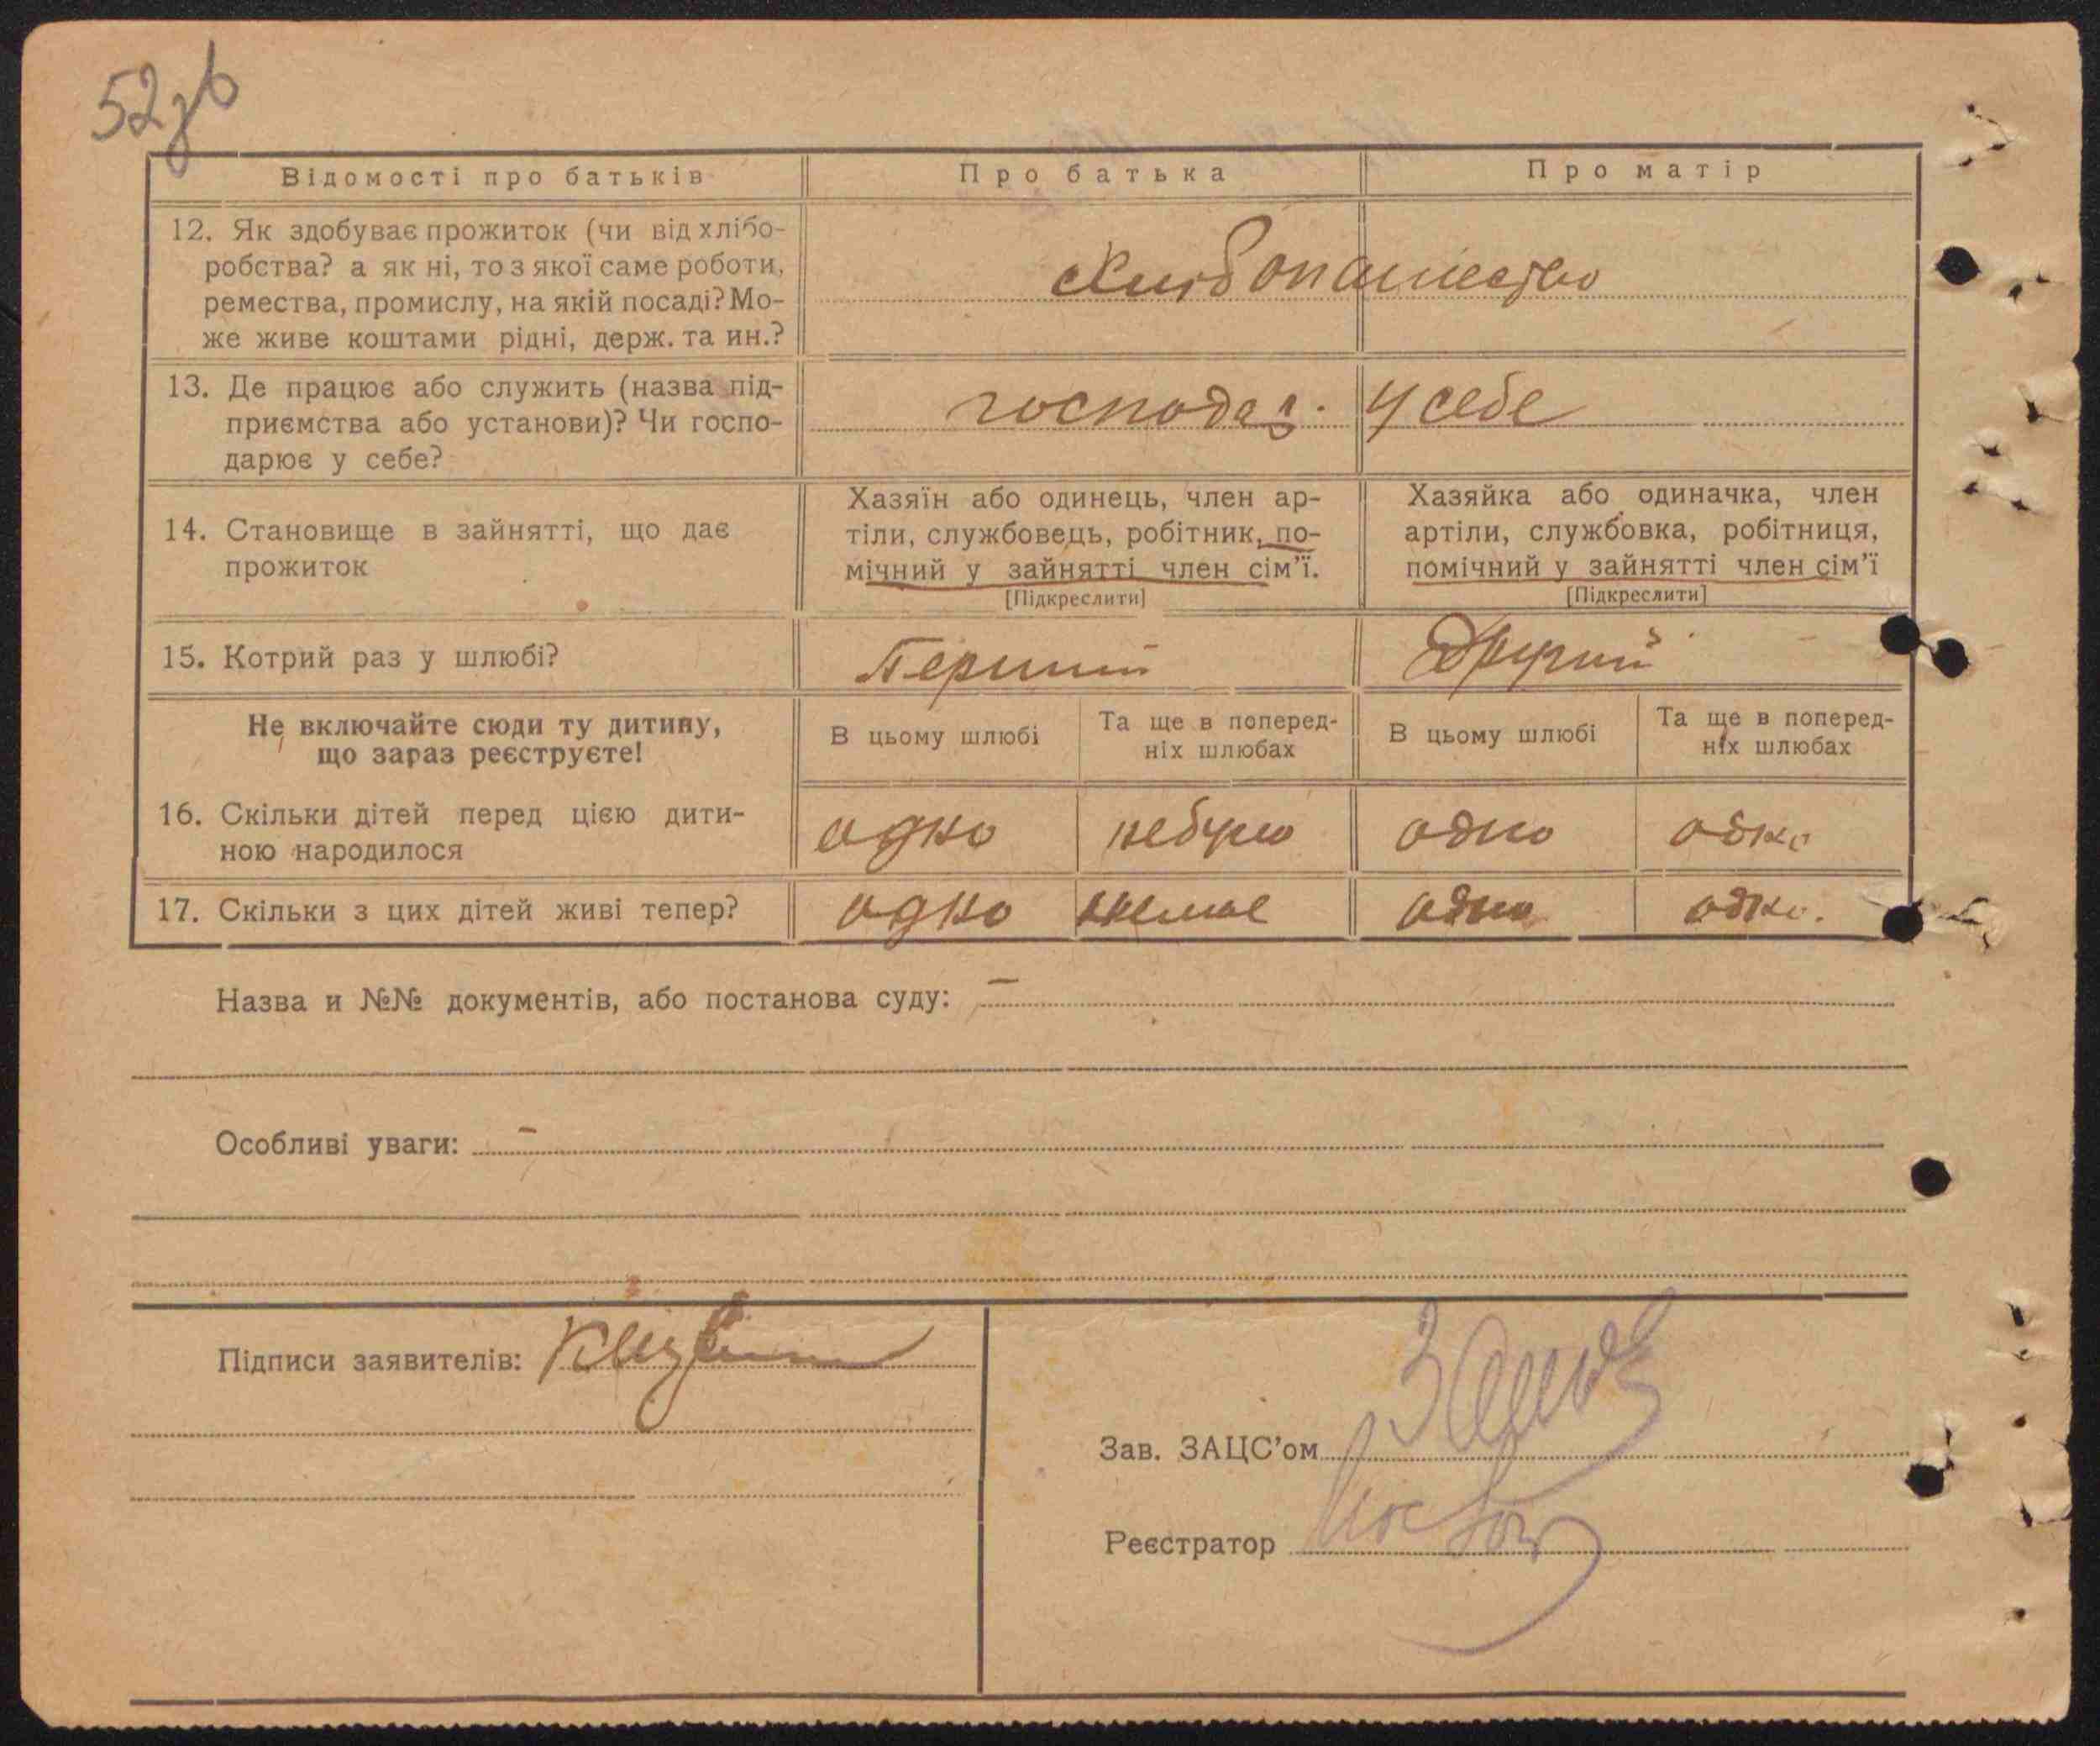 52зв
Відомості про батьків
Про батька
Про матір
12. Як здобуває прожиток (чи від хлібо-
робства? а як ні, то з якої саме роботи,
ремества, промислу, на якій посаді? Мо-
же живе коштами рідні, держ. та ин.?
Хлібопашество
13. Де працює або служить (назва під-
приємства або установи)? Чи госпо-
дарює у себе?
господар. у себе
14. Становище в зайнятті, що дає
прожиток
Хазяїн або одинець, член ар-
тіли, службовець, робітник, по-
мічний у зайнятті член сім'ї.
[Підкреслити]
Хазяйка або одиначка, член
артіли, службовка, робітниця,
помічний у зайнятті член сім'ї
[Підкреслити]
15. Котрий раз у шлюбі?
Перший
Другий
Не включайте сюди ту дитину,
що зараз реєструєте!
В цьому шлюбі
Та ще в поперед-
ніх шлюбах
В цьому шлюбі
Та ще в поперед-
ніх шлюбах
16. Скільки дітей перед цією дити-
ною народилося
одно
небуло
одно
одно
17. Скільки з цих дітей живі тепер?
одно
немає
одно
одно.
Назва и №№ документів, або постанова суду: —
Особливі уваги: —
Підписи заявителів:
Зав. ЗАЦС'ом
Реєстратор